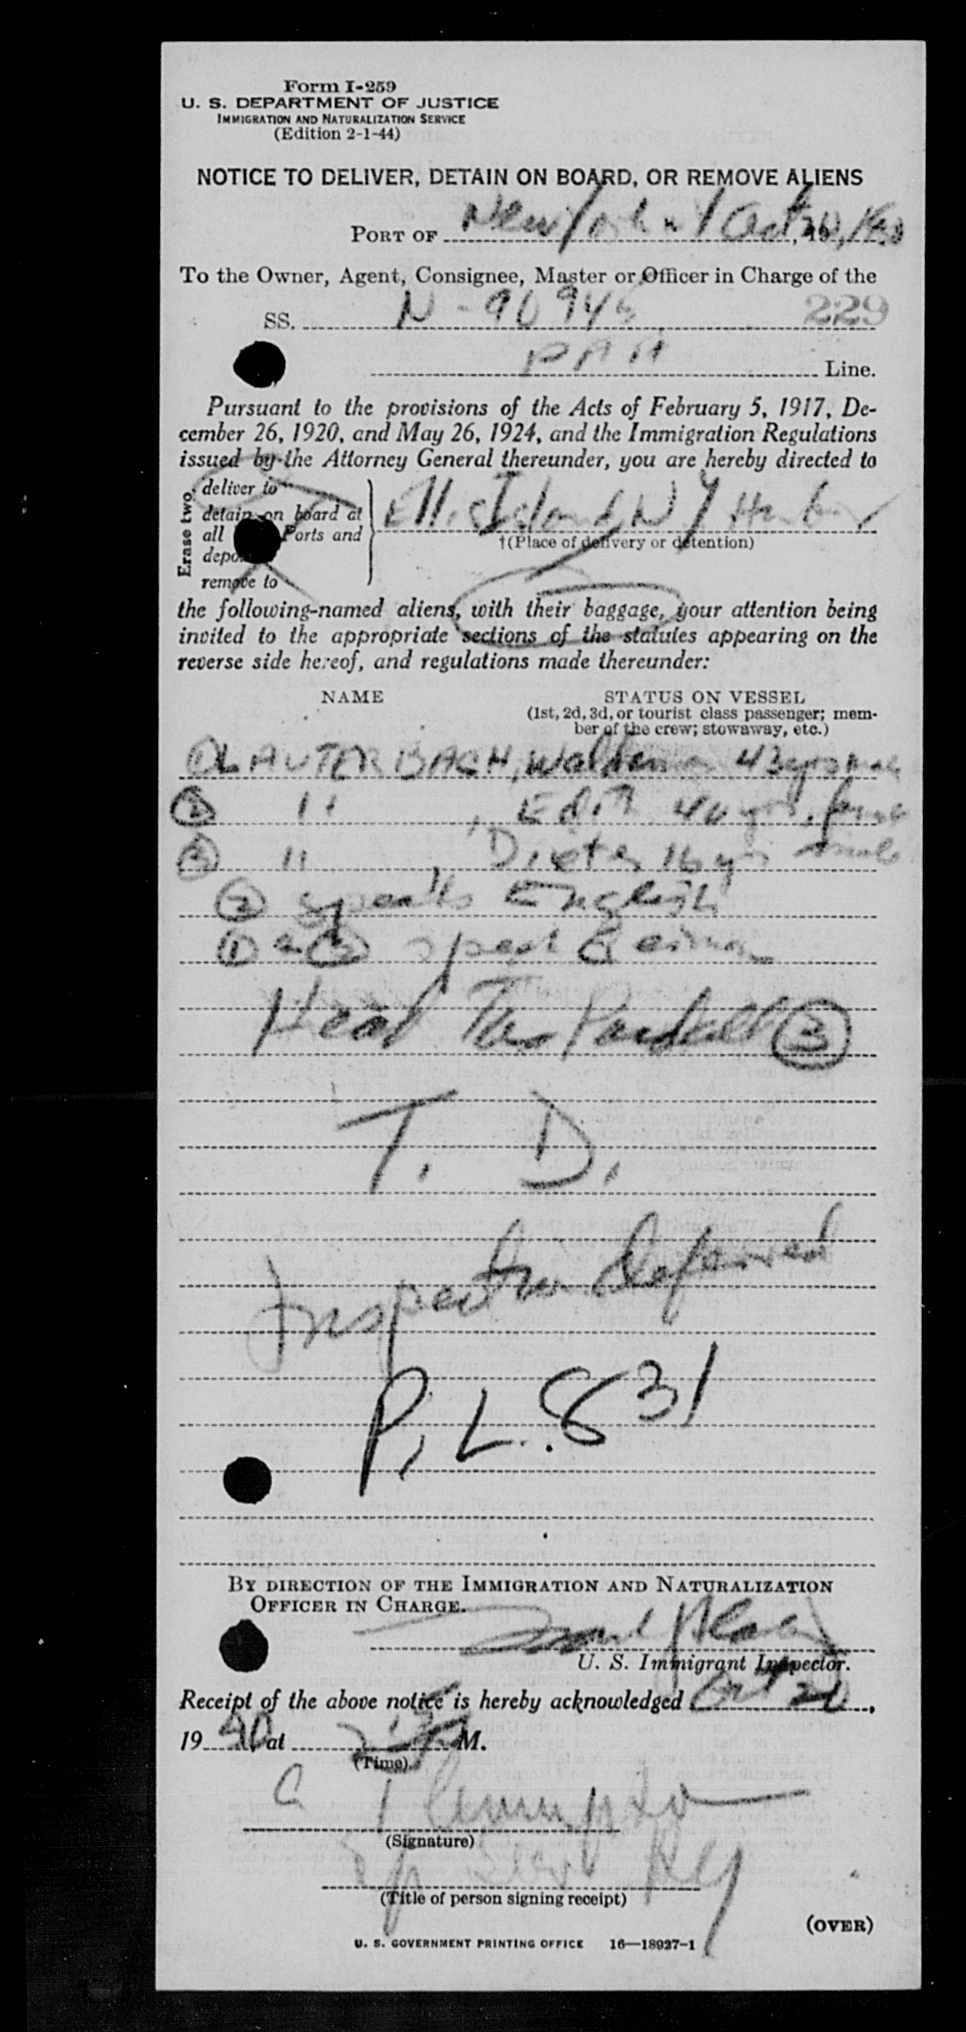 Form I-259
U. S. DEPARTMENT OF JUSTICE
IMMIGRATION AND NATURALIZATION SERVICE
(Edition 2-1-44)
NOTICE TO DELIVER, DETAIN ON BOARD, OR REMOVE ALIENS
PORT OF New York N Y Oct 20, 19
To the Owner, Agent, Consignee, Master or Officer in Charge of the
SS. N-90946 229
PAA Line.
Pursuant to the provisions of the Acts of February 5, 1917, De-
cember 26, 1920, and May 26, 1924, and the Immigration Regulations
issued by the Attorney General thereunder, you are hereby directed to
Erase two.
deliver to
detain on board at
all Ports and
remove to
Ellis Island, N Y Harbor
†(Place of delivery or detention)
the following-named aliens, with their baggage, your attention being
invited to the appropriate sections of the statutes appearing on the
reverse side hereof, and regulations made thereunder:
NAME STATUS ON VESSEL
(1st, 2d, 3d, or tourist class passenger; mem-
ber of the crew; stowaway, etc.)
① LAUTERBACH, Waldemar 43 yrs male
② " , Edith 40 yrs. female
③ " , Dieter 16 yrs male
② speaks English
① & ③ speak German
Head Tax ③
T. D.
Inspection deferred
P. L. 831
BY DIRECTION OF THE IMMIGRATION AND NATURALIZATION
OFFICER IN CHARGE.
U. S. Immigrant Inspector.
Receipt of the above notice is hereby acknowledged Oct 20,
19 50 at M.
(Time)
(Signature)
(Title of person signing receipt)
(OVER)
U. S. GOVERNMENT PRINTING OFFICE 16—18927-1